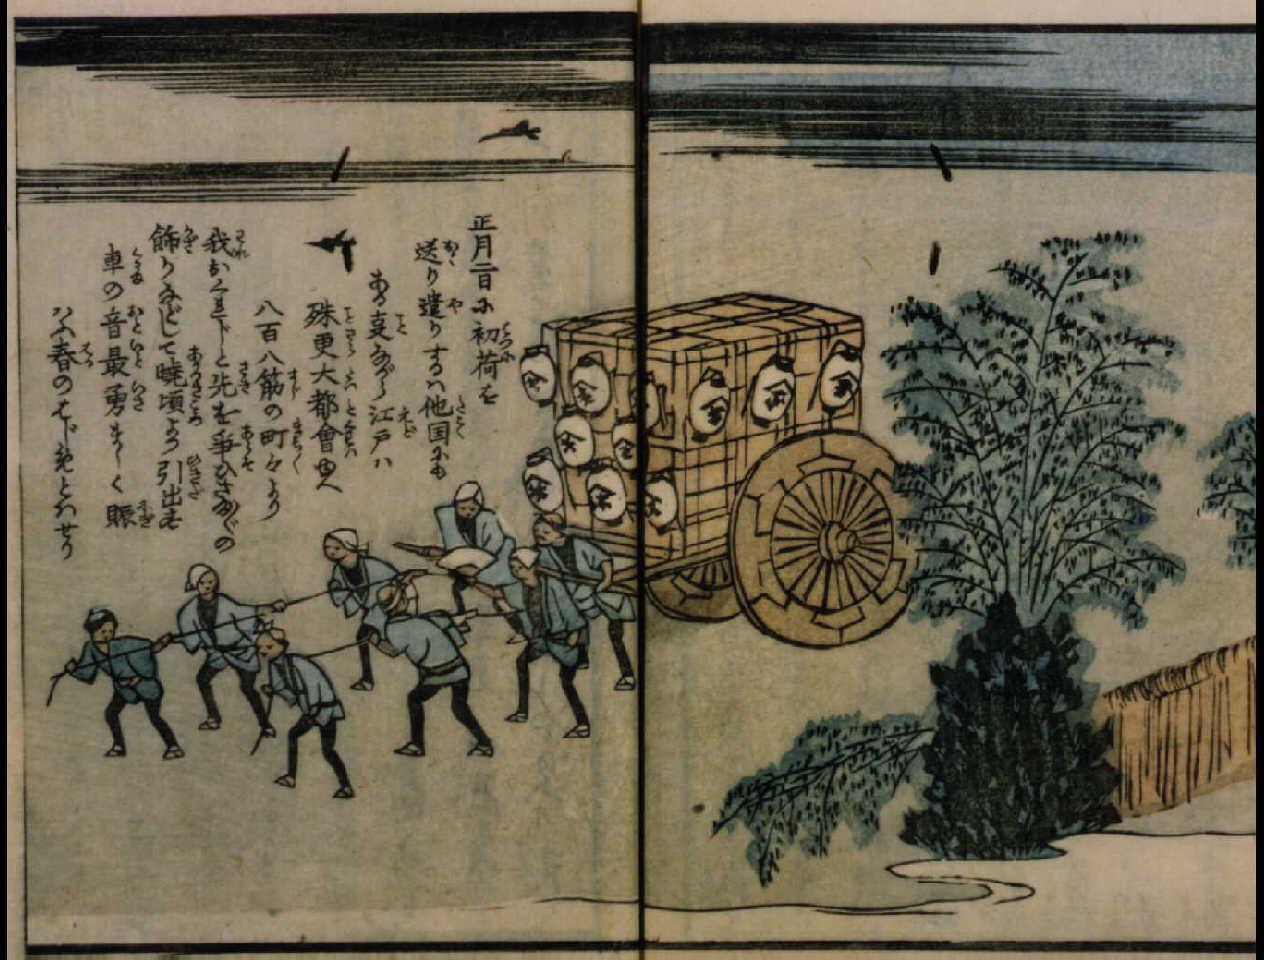 正月二日に初荷を
送り遣りするハ他国にも
ある哀ながら江戸ハ
殊更大都會ゆへ
八百八筋の町々より
我おくれじと先を争ひさながらの
飾りなどして暁頃より引出す
車の音最勇ましく賑
春の